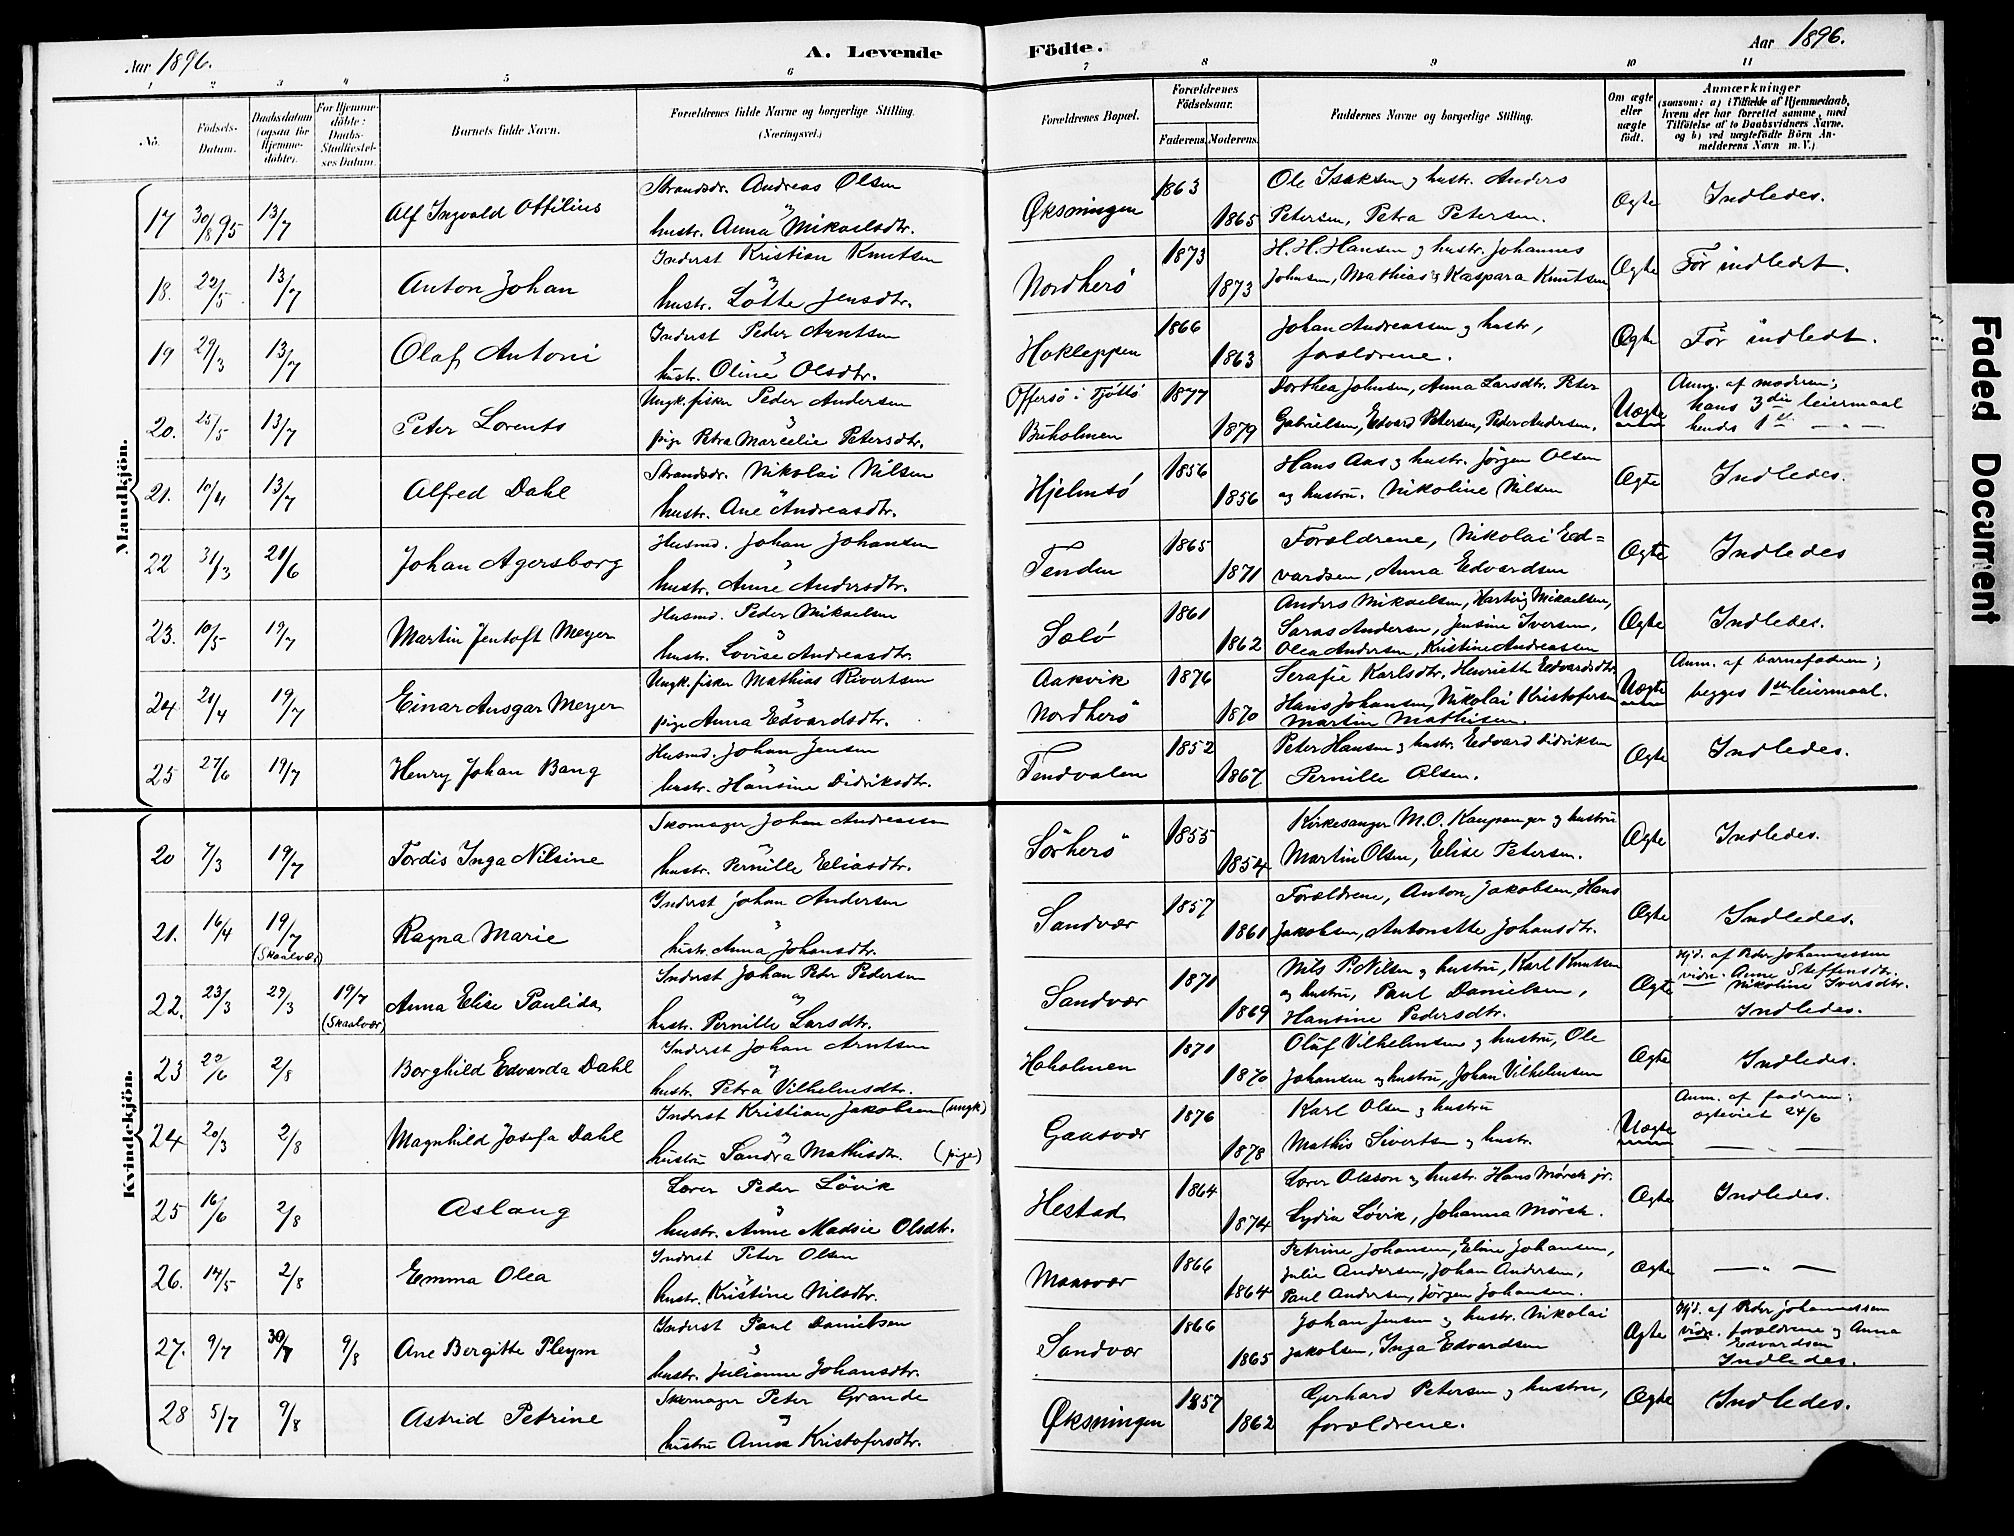 Aar 1896.
A. Levende Fødte.
Aar 1896.
1 2 3 4 5 6 7 8 9 10 11
No.
Fødsels-Datum.
Daabsdatum (ogsaa for Hjemmedøbte).
For Hjemmedøbte: Daabs-Stadfæstelses Datum.
Barnets fulde Navn.
Forældrenes fulde Navne og borgerlige Stilling. (Næringsvei.)
Forældrenes Bopæl.
Forældrenes Fødselsaar.
Faderens. Moderens.
Faddernes Navne og borgerlige Stilling.
Om ægte eller uægte født.
Anmærkninger
(saasom: a) i Tilfælde af Hjemmedaab, hvem der har forrettet samme, med Tilføielse af to Daabsvidners Navne, og b) ved uægtefødte Børn Anmelderens Navn m. V.)
Mandkjön.
17 30/8 95 13/7 Alf Ingvald Ottilius Strandsdr. Andreas Olsen Øksningen 1863 Ole Isaksen og hustr. Anders Ægte Indledes.
hustr. Anna Mikaelsdtr. 1865 Petersen, Petra Petersen.
18. 22/5 13/7 Anton Johan Inderst Kristian Knutsen Nordherö 1873 H. H. Hansen og hustr. Johannes Ægte Før indledt.
hustr. Lotte Jensdtr. 1873 Johnsen, Mathias og Kaspara Knutsen
19 29/3 13/7 Olaf Antoni Inderst Peder Arntsen Hakleppen 1866 Johan Andreassen og hustr, Ægte Før indledt.
hustr. Oline Olsdtr. 1863 forældrene.
20. 25/5 13/7 Peter Lorents Ungk. fisker Peder Andersen Offersø i Tjøttø 1877 Dorthea Johnsen, Anna Larsdtr. Peter Uægte Anm. af moderen;
pige Petra Marcelie Petersdtr. Buholmen 1879 Gabrielsen, Edvard Petersen, Peder Andersen. hans 3die leiermaal
hendes 1ste — " —
21. 10/4 13/7 Alfred Dahl Strandsdr. Nikolai Nilsen Hjelmsø 1856 Hans Aas og hustr. Jørgen Olsen Ægte Indledes.
hustr. Ane Andreasdtr. 1856 og hustru. Nikoline Nilsen
22 31/3 21/6 Johan Agersborg Husmd. Johan Johansen Tenden 1865 Forældrene, Nikolai Ed= Ægte Indledes
hustr. Anne Andersdtr. 1871 vardsen, Anna Edvardsen
23. 10/5 19/7 Martin Jentoft Meyer Husmd. Peder Mikaelsen Sølö 1861 Anders Mikaelsen, Hartvig Mikaelsen, Ægte Indledes.
hustr. Lovise Andreasdtr. 1862 Saras Andersen, Jensine Iversen,
Olea Andersen, Kristine Andreassen
24 21/4 19/7 Einar Ansgar Meyer Ungk. fisker Mathias Rivertsen Aakvik 1876 Serafie Karlsdtr, Henriette Edvardsdtr Uægte Anm. af barnefaderen;
pige Anna Edvardsdtr. Nordherö 1870 Hans Johansen, Nikolai Kristofersen begges 1ste leiermaal.
Martin Mathisen.
25 27/6 19/7 Henry Johan Bang Husmd. Johan Jensen Tendvalen 1852 Peter Hansen og hustr. Edvard Didriksen Ægte Indledes.
hustr. Hansine Didriksdtr. 1867 Pernille Olsen.
Kvindekjön.
20 7/3 19/7 Tordis Inga Nilsine Skomager Johan Andreassen Sörherö 1855 Kirkesanger M. O. Kaupanger og hustru Ægte Indledes.
hustr. Pernille Eliasdtr. 1854 Martin Olsen, Elise Petersen.
21. 16/4 19/7 (Skaalvær) Ragna Marie Inderst Johan Andersen Sandvær 1857 Forældrene, Anton Jakobsen, Hans Ægte Indledes.
hustr. Anna Johansdtr. 1861 Jakobsen, Antonette Johansdtr.
22. 23/3 29/3 19/7 (Skaalvær) Anna Elise Paulida Inderst Johan Peter Pedersen Sandvær 1871 Nils P. Nilsen og hustru, Karl Knutsen Ægte Hjd. af Peder Johannessen
hustr. Pernille Larsdtr. 1869 og hustru, Paul Danielsen, vidn. Anne Steffensdtr.
Hansine Pedersdtr. Nikoline Iversdtr.
Indledes.
23 22/6 2/8 Borghild Edvarda Dahl Inderst Johan Arntsen Haholmen 1870 Oluf Vilhelmsen og hustru, Ole Ægte Indledes.
hustr. Petra Vilhelmsdtr. 1870 Johansen og hustru, Johan Vilhelmsen
24 20/3 2/8 Magnhild Josefa Dahl Inderst Kristian Jakobsen (ungk) Gaasvær 1876 Karl Olsen og hustru Uægte Anm. af faderen;
hustru Sandra Mathisdtr. (pige) 1878 Mathis Sivertsen og hustr. ægteviet 24/6
— " —
25 16/6 2/8 Aslaug Lærer Peder Løvik Hestad 1864 Lærer Olsson og hustr. Hans Mørch jr. Ægte Indledes.
hustr. Anne Madsie Olsdtr. 1874 Lydia Løvik, Johanna Mørch.
26. 14/5 2/8 Emma Olea Inderst Peter Olsen Maasvær 1866 Petrine Johansen, Eline Johansen, Ægte — " —
hustr. Kristine Nilsdtr. 1864 Julie Andersen, Johan Andersen,
Paul Andersen, Jørgen Johansen.
27. 9/7 30/7 9/8 Ane Bergitte Pleym Inderst Paul Danielsen Sandvær 1866 Johan Jensen og hustr. Nikolai Ægte Hjd. af Peder Johannessen
hustr. Julianne Johansdtr. 1865 Jakobsen, Inga Edvardsen vidn. forældrene og Anna
Edvardsen
Indledes.
28 5/7 9/8 Astrid Petrine Skomager Peter Grande Øksningen 1857 Gerhard Petersen og hustru, Ægte Indledes.
hustru Anna Kristofersdtr. 1862 forældrene.
Faded Document